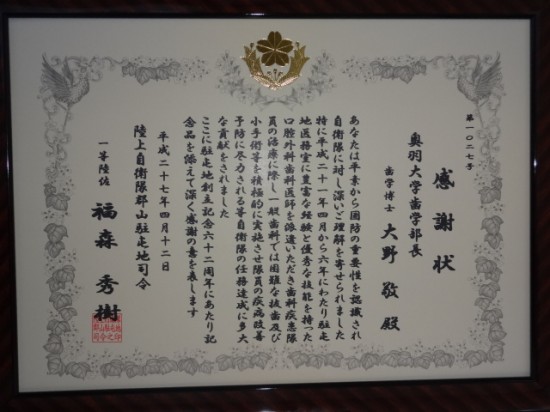 第一〇二七号
感謝状
奥羽大学歯学部長
歯学博士 大野敬殿
あなたは平素から国防の重要性を認識され
自衛隊に対し深いご理解を寄せられました
特に平成二十一年四月から六年にわたり駐屯
地医務室に豊富な経験と優秀な技能を持った
口腔外科歯科医師を派遣いただき歯科疾患隊
員の治療に際し一般歯科では困難な抜歯及び
小手術等を積極的に実施させ隊員の疾病改善
予防に尽力される等自衛隊の任務達成に多大
な貢献をされました
ここに駐屯地創立記念六十二周年にあたり記
念品を添えて深く感謝の意を表します
平成二十七年四月十二日
陸上自衛隊郡山駐屯地司令
一等陸佐 福森秀樹